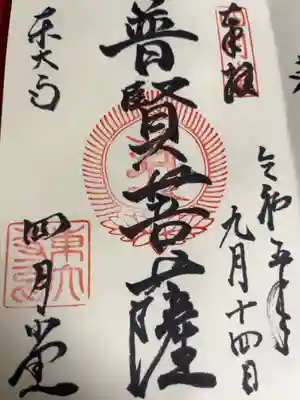 奉拝
令和五年
九月十四日
普賢菩薩
東大寺
四月堂